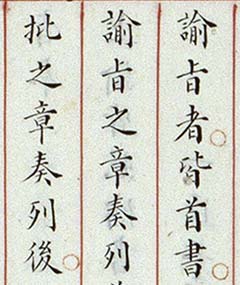 諭旨者皆首書
諭旨之章奏列
批之章奏列後